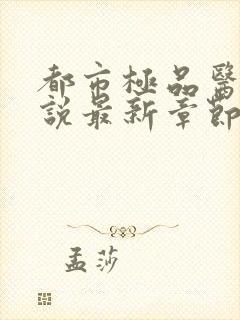 都市極品醫
說最新章節
孟莎